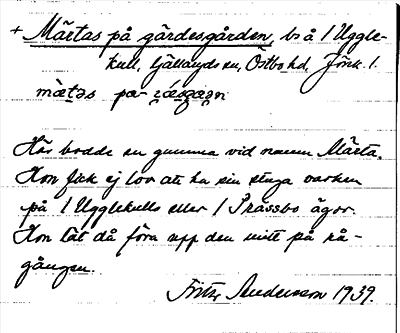 + Märtas på gärdesgården, bs å 1 Uggle-
kull, Källands sn, Östbo hd, Jönk. l.
mä̀ṭəs pa-
Här bodde en gumma vid namn Märta.
Hon fick ej lov att ha sin stuga varken
på 1 Ugglekulls eller 1 Prässbo ägor.
Hon lät då föra upp den mitt på rå-
gången.
Fritz Anderson 1939.